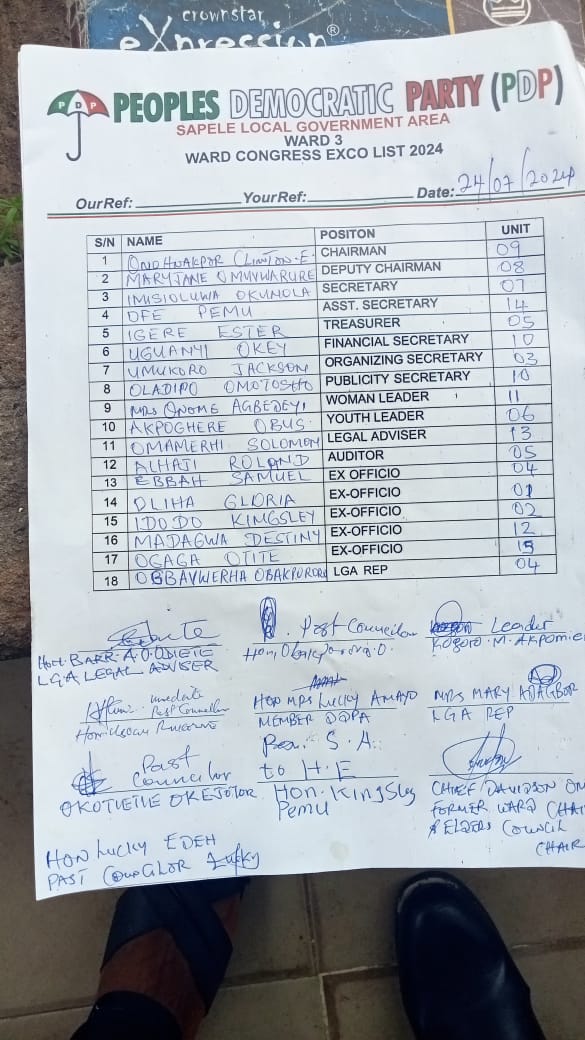 crownstar
eXpression®
PDP PEOPLES DEMOCRATIC PARTY (PDP)
SAPELE LOCAL GOVERNMENT AREA
WARD 3
WARD CONGRESS EXCO LIST 2024
Our Ref: Your Ref: Date: 24/07/2024
S/N NAME POSITON UNIT
1 ONOHWAKPOR CLINTON.E. CHAIRMAN 09
2 MARYJANE OMUVWARURE DEPUTY CHAIRMAN 08
3 IMISIOLUWA OKUNOLA SECRETARY 07
4 DFE PEMU ASST. SECRETARY 14
5 IGERE ESTER TREASURER 05
6 UGUANYI OKEY FINANCIAL SECRETARY 10
7 UMUKORO JACKSON ORGANIZING SECRETARY 03
8 OLADIPO OMOTOSHO PUBLICITY SECRETARY 10
9 MRS ONOME AGBEDEYI WOMAN LEADER 11
10 AKPOGHERE OBUS YOUTH LEADER 06
11 OMAMERHI SOLOMON LEGAL ADVISER 13
12 ALHAJI ROLAND AUDITOR 05
13 EBBAH SAMUEL EX OFFICIO 04
14 OLIHA GLORIA EX-OFFICIO 01
15 IDODO KINGSLEY EX-OFFICIO 02
16 MADAGWA DESTINY EX-OFFICIO 12
17 OGAGA OTITE EX-OFFICIO 15
18 LGA REP 04
Past Councilor Leader
HON. BARR. A.O. ODIETE Hon. KOGORO. M. AKPOMIE
LGA LEGAL ADVISER
Past Councillor HON MRS LUCKY AMAYO NRS MARY ADAGBOR
MEMBER DOPA LGA REP
Past S.A.
Councilor to H.E
OKOTIETIE OKEJOTOR Hon. Kingsley CHIEF DAVIDSON
Pemu FORMER WARD CHAIR
& ELDERS COUNCIL
CHAIR
HON LUCKY EDEH
PAST COUNCILOR Lucky